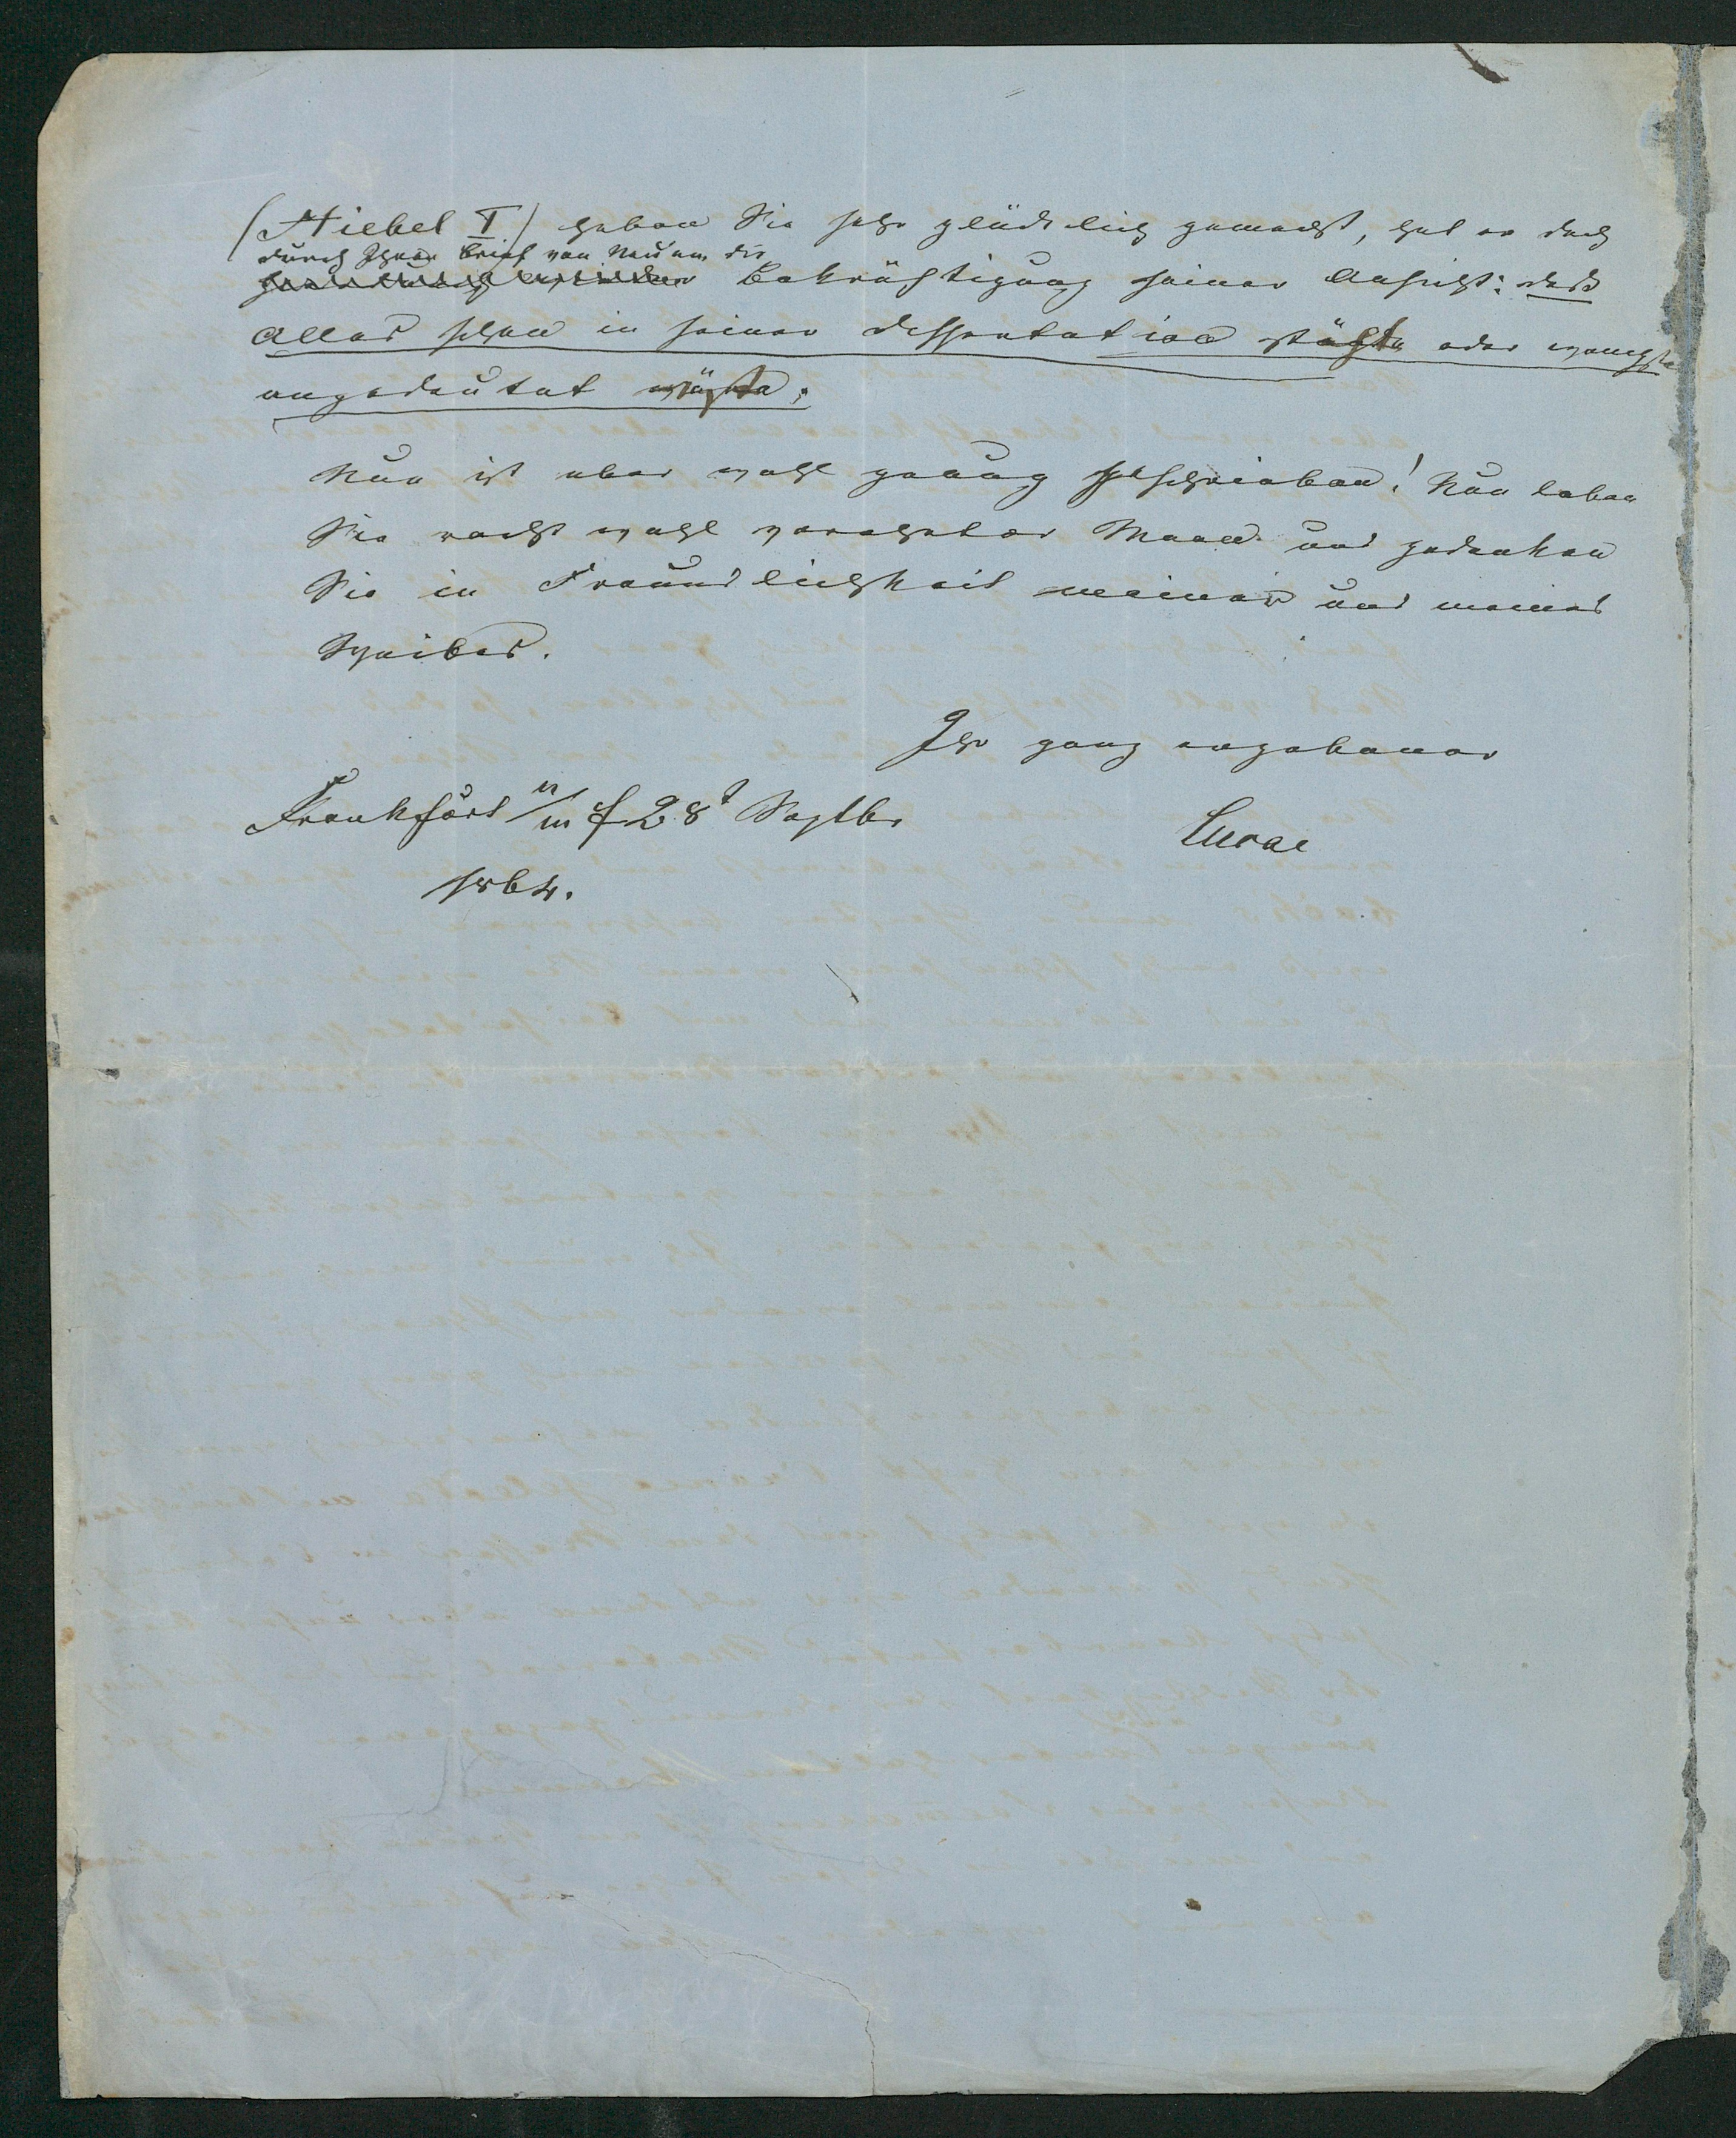 (Stiebel I.) haben Sie sehr glücklich gemacht, hat er doch
durch Ihren Brief von Neuem die
Bekräftigung seiner Ansicht: daß
Alles schon in seiner Dissertation stähte oder wenigste
angedeutet wäre.
Nun ist aber wohl genug geschrieben! Nun leben
Sie recht wohl verehrter Mann und gedenken
Sie in Freundlichkeit meiner und meines
Weibes.
Ihr ganz ergebener
Frankfurt a/m d 28t Septbr
Lucae
1864.